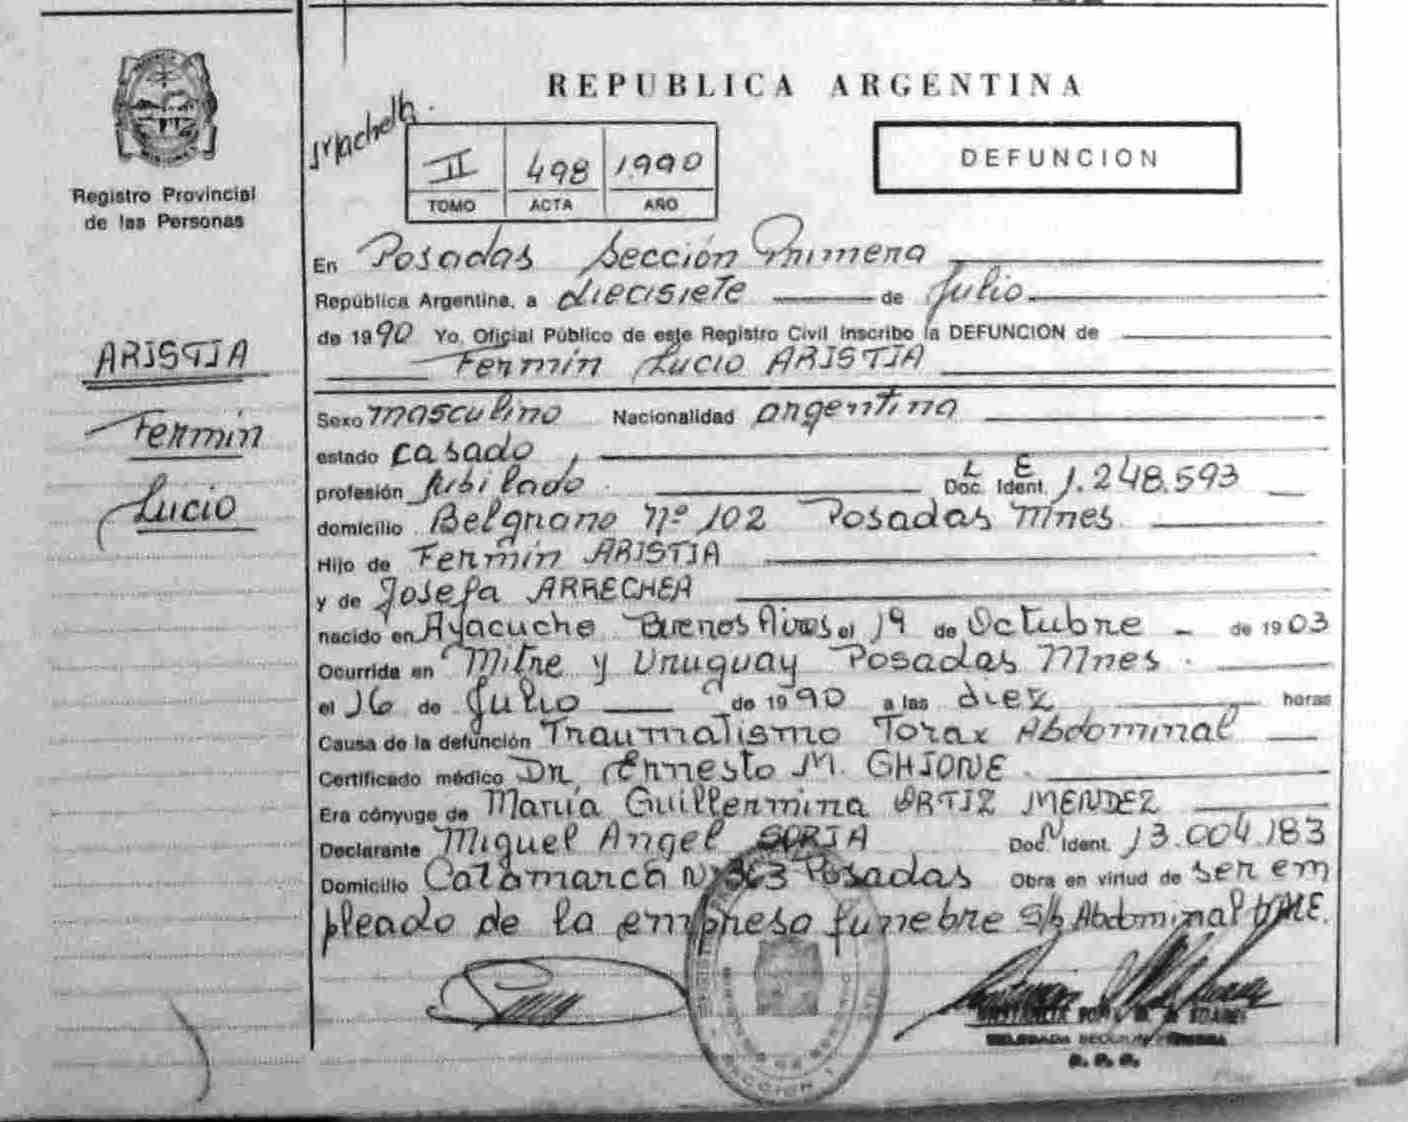 REPUBLICA ARGENTINA
Registro Provincial
de las Personas
II 498 1990
TOMO ACTA AÑO
DEFUNCION
ARISTIA
Fermín
Lucio
En Posadas Sección Primera
República Argentina, a diecisiete de Julio
de 1990 Yo, Oficial Público de este Registro Civil inscribo la DEFUNCION de
Fermín Lucio ARISTIA
Sexo masculino Nacionalidad argentina
estado casado
profesión Jubilado L E Doc. Ident. 1.248.593
domicilio Belgrano Nº 102 Posadas Mnes
Hijo de Fermín ARISTIA
y de Josefa ARRECHEA
nacido en Ayacucho Buenos Aires el 19 de Octubre de 1903
Ocurrida en Mitre y Uruguay Posadas Mnes.
el 16 de Julio de 1990 a las diez horas
Causa de la defunción Traumatismo Torax Abdominal
Certificado médico Dr. Ernesto M. GHIONE
Era cónyuge de María Guillermina ORTIZ MENDEZ
Declarante Miguel Angel SORIA Doc. Ident. 13.004.183
Domicilio Catamarca Nº 363 Posadas Obra en virtud de ser em
pleado de la empresa funebre S/b Abdominal VALE.